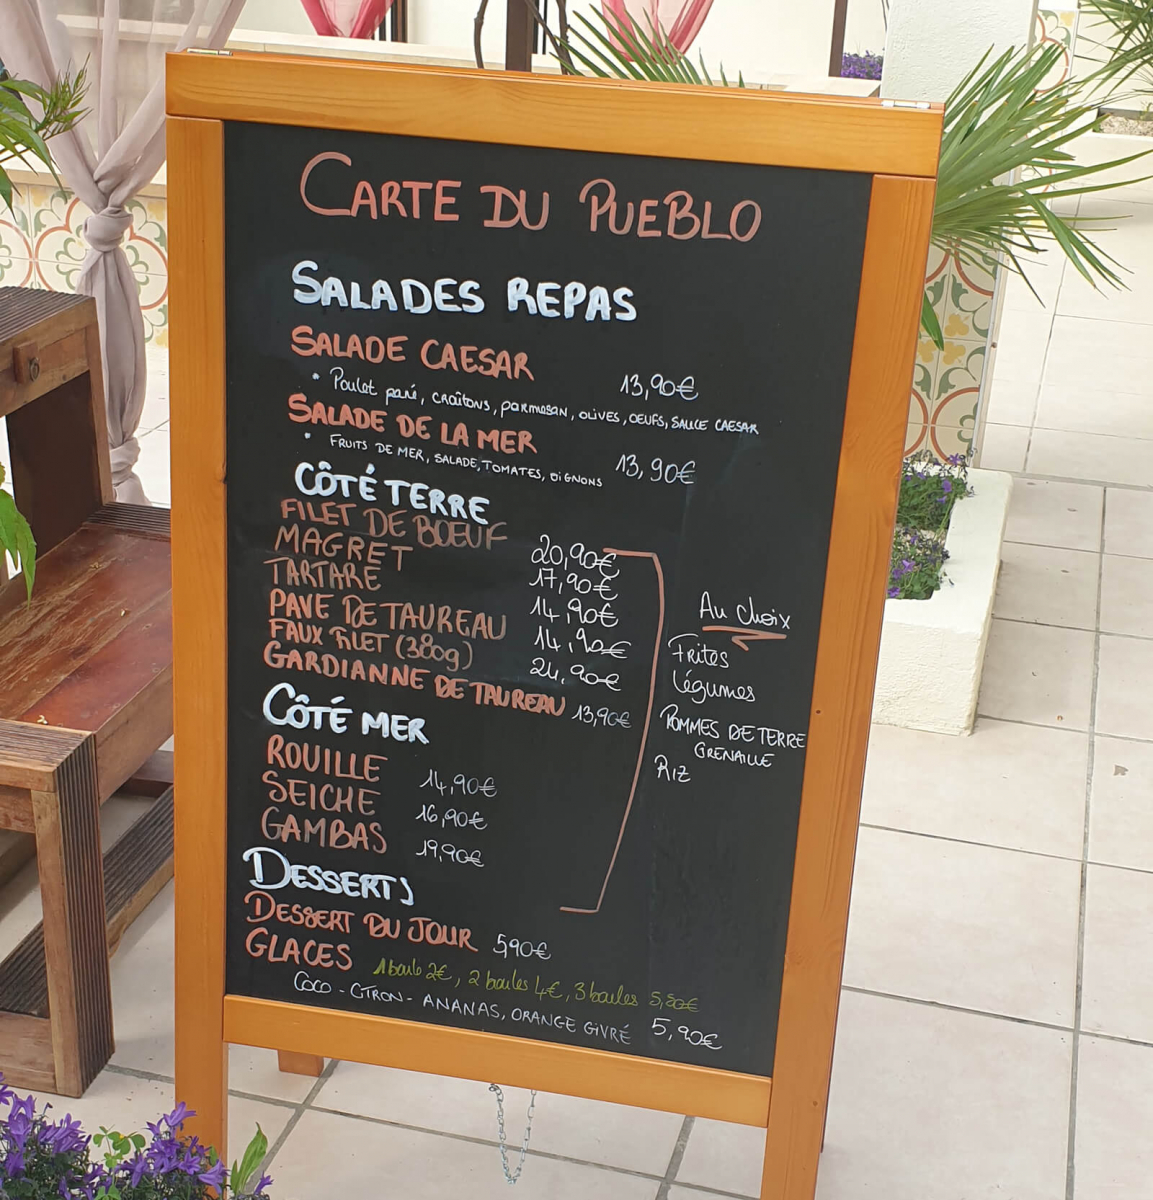 CARTE DU PUEBLO
SALADES REPAS
SALADE CAESAR 13,90€
• Poulet pané, croûtons, parmesan, olives, oeufs, sauce caesar
SALADE DE LA MER 13,90€
• FRUITS DE MER, SALADE, TOMATES, OIGNONS
CÔTÉ TERRE
FILET DE BOEUF 20,90€
MAGRET 17,90€
TARTARE 14,90€
PAVE DE TAUREAU 14,90€
FAUX FILET (380g) 24,90€
GARDIANNE DE TAUREAU 13,90€
CÔTÉ MER
ROUILLE 14,90€
SEICHE 16,90€
GAMBAS 19,90€
Au choix
Frites
légumes
POMMES DE TERRE
GRENAILLE
RIZ
DESSERTS
DESSERT DU JOUR 5,90€
GLACES 1 boule 2€, 2 boules 4€, 3 boules 5,80€
COCO - CITRON - ANANAS, ORANGE GIVRÉ 5,90€